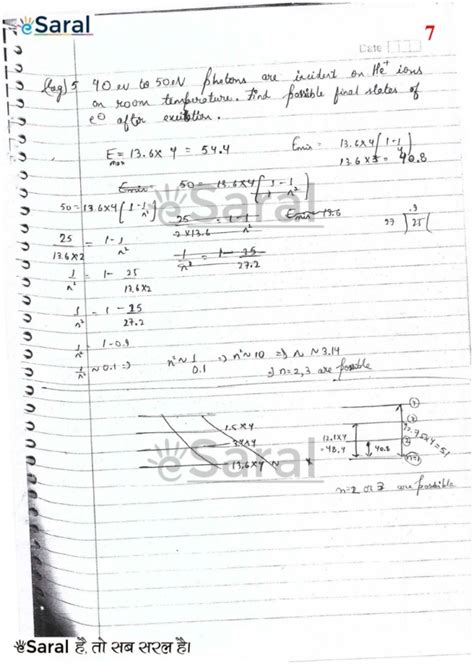 eSaral
7
Date
(Pag) 5 40 eV to 50eV photons are incident on He+ ions
on room temperature. Find possible final states of
e⊖ after excitation.
E = 13.6 x 4 = 54.4
max
Emin = 13.6x4 (1-1/4)
13.6 x 3 = 40.8
Emin 50 = 13.6x4 [1 - 1/n²]
50 = 13.6x4 [1 - 1/n²]
25/2x13.6 = 1 - 1/n²
Emin 13.6
27 ) 25 ( .9
25/13.6x2 = 1 - 1/n²
1/n² = 1 - 25/27.2
1/n² = 1 - 25/13.6x2
1/n² = 1 - 25/27.2
1/n² = 1 - 0.9
1/n² ≈ 0.1 ⇒ n² ≈ 1/0.1 ⇒ n² ≈ 10 ⇒ n ≈ 3.14
⇒ n = 2, 3 are possible
1.5x4
3.4x4
13.6x4
eSaral
12.1x4
=48.4
40.8
12.75x4=51
n=1
n=2 or 3 are possible
eSaral है, तो सब सरल है।